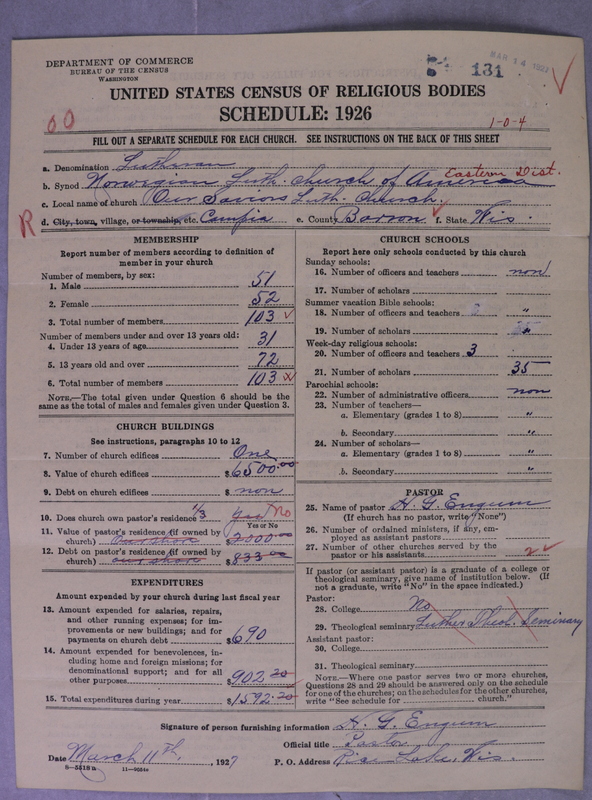 DEPARTMENT OF COMMERCE
BUREAU OF THE CENSUS
WASHINGTON
MAR 14 1927
131
UNITED STATES CENSUS OF RELIGIOUS BODIES
SCHEDULE: 1926
00
1-0-4
FILL OUT A SEPARATE SCHEDULE FOR EACH CHURCH. SEE INSTRUCTIONS ON THE BACK OF THIS SHEET
a. Denomination Lutheran
Eastern Dist.
b. Synod Norwegian Luth. Church of America
c. Local name of church Our Saviors Luth. Church.
R d. City, town, village, or township, etc. Comfia e. County Barron f. State Wis.
MEMBERSHIP
Report number of members according to definition of
member in your church
Number of members, by sex:
1. Male 51
2. Female 52
3. Total number of members 103
Number of members under and over 13 years old:
4. Under 13 years of age 31
5. 13 years old and over 72
6. Total number of members 103
NOTE.—The total given under Question 6 should be the
same as the total of males and females given under Question 3.
CHURCH BUILDINGS
See instructions, paragraphs 10 to 12
7. Number of church edifices One
8. Value of church edifices $6500.00
9. Debt on church edifices $ non
10. Does church own pastor's residence 1/3 Yes No
Yes or No
11. Value of pastor's residence (if owned by
church) our share $2000.00
12. Debt on pastor's residence (if owned by
church) our share $833.00
EXPENDITURES
Amount expended by your church during last fiscal year
13. Amount expended for salaries, repairs,
and other running expenses; for im-
provements or new buildings; and for
payments on church debt $690
14. Amount expended for benevolences, in-
cluding home and foreign missions; for
denominational support; and for all
other purposes $902.20
15. Total expenditures during year $1592.20
CHURCH SCHOOLS
Report here only schools conducted by this church
Sunday schools:
16. Number of officers and teachers non
17. Number of scholars
Summer vacation Bible schools:
18. Number of officers and teachers "
19. Number of scholars "
Week-day religious schools:
20. Number of officers and teachers 3
21. Number of scholars 35
Parochial schools:
22. Number of administrative officers non
23. Number of teachers—
a. Elementary (grades 1 to 8) "
b. Secondary "
24. Number of scholars—
a. Elementary (grades 1 to 8) "
b. Secondary "
PASTOR
25. Name of pastor H. G. Engum
(If church has no pastor, write "None")
26. Number of ordained ministers, if any, em-
ployed as assistant pastors
27. Number of other churches served by the
pastor or his assistants 2
If pastor (or assistant pastor) is a graduate of a college or
theological seminary, give name of institution below. (If
not a graduate, write "No" in the space indicated.)
Pastor:
28. College No
29. Theological seminary Luther Theol. Seminary
Assistant pastor:
30. College
31. Theological seminary
NOTE.—Where one pastor serves two or more churches,
Questions 28 and 29 should be answered only on the schedule
for one of the churches; on the schedules for the other churches,
write "See schedule for church."
Signature of person furnishing information H. G. Engum
Official title Pastor
Date March 11th, 1927 P. O. Address Rice Lake, Wis.
8-5518a 11-9604